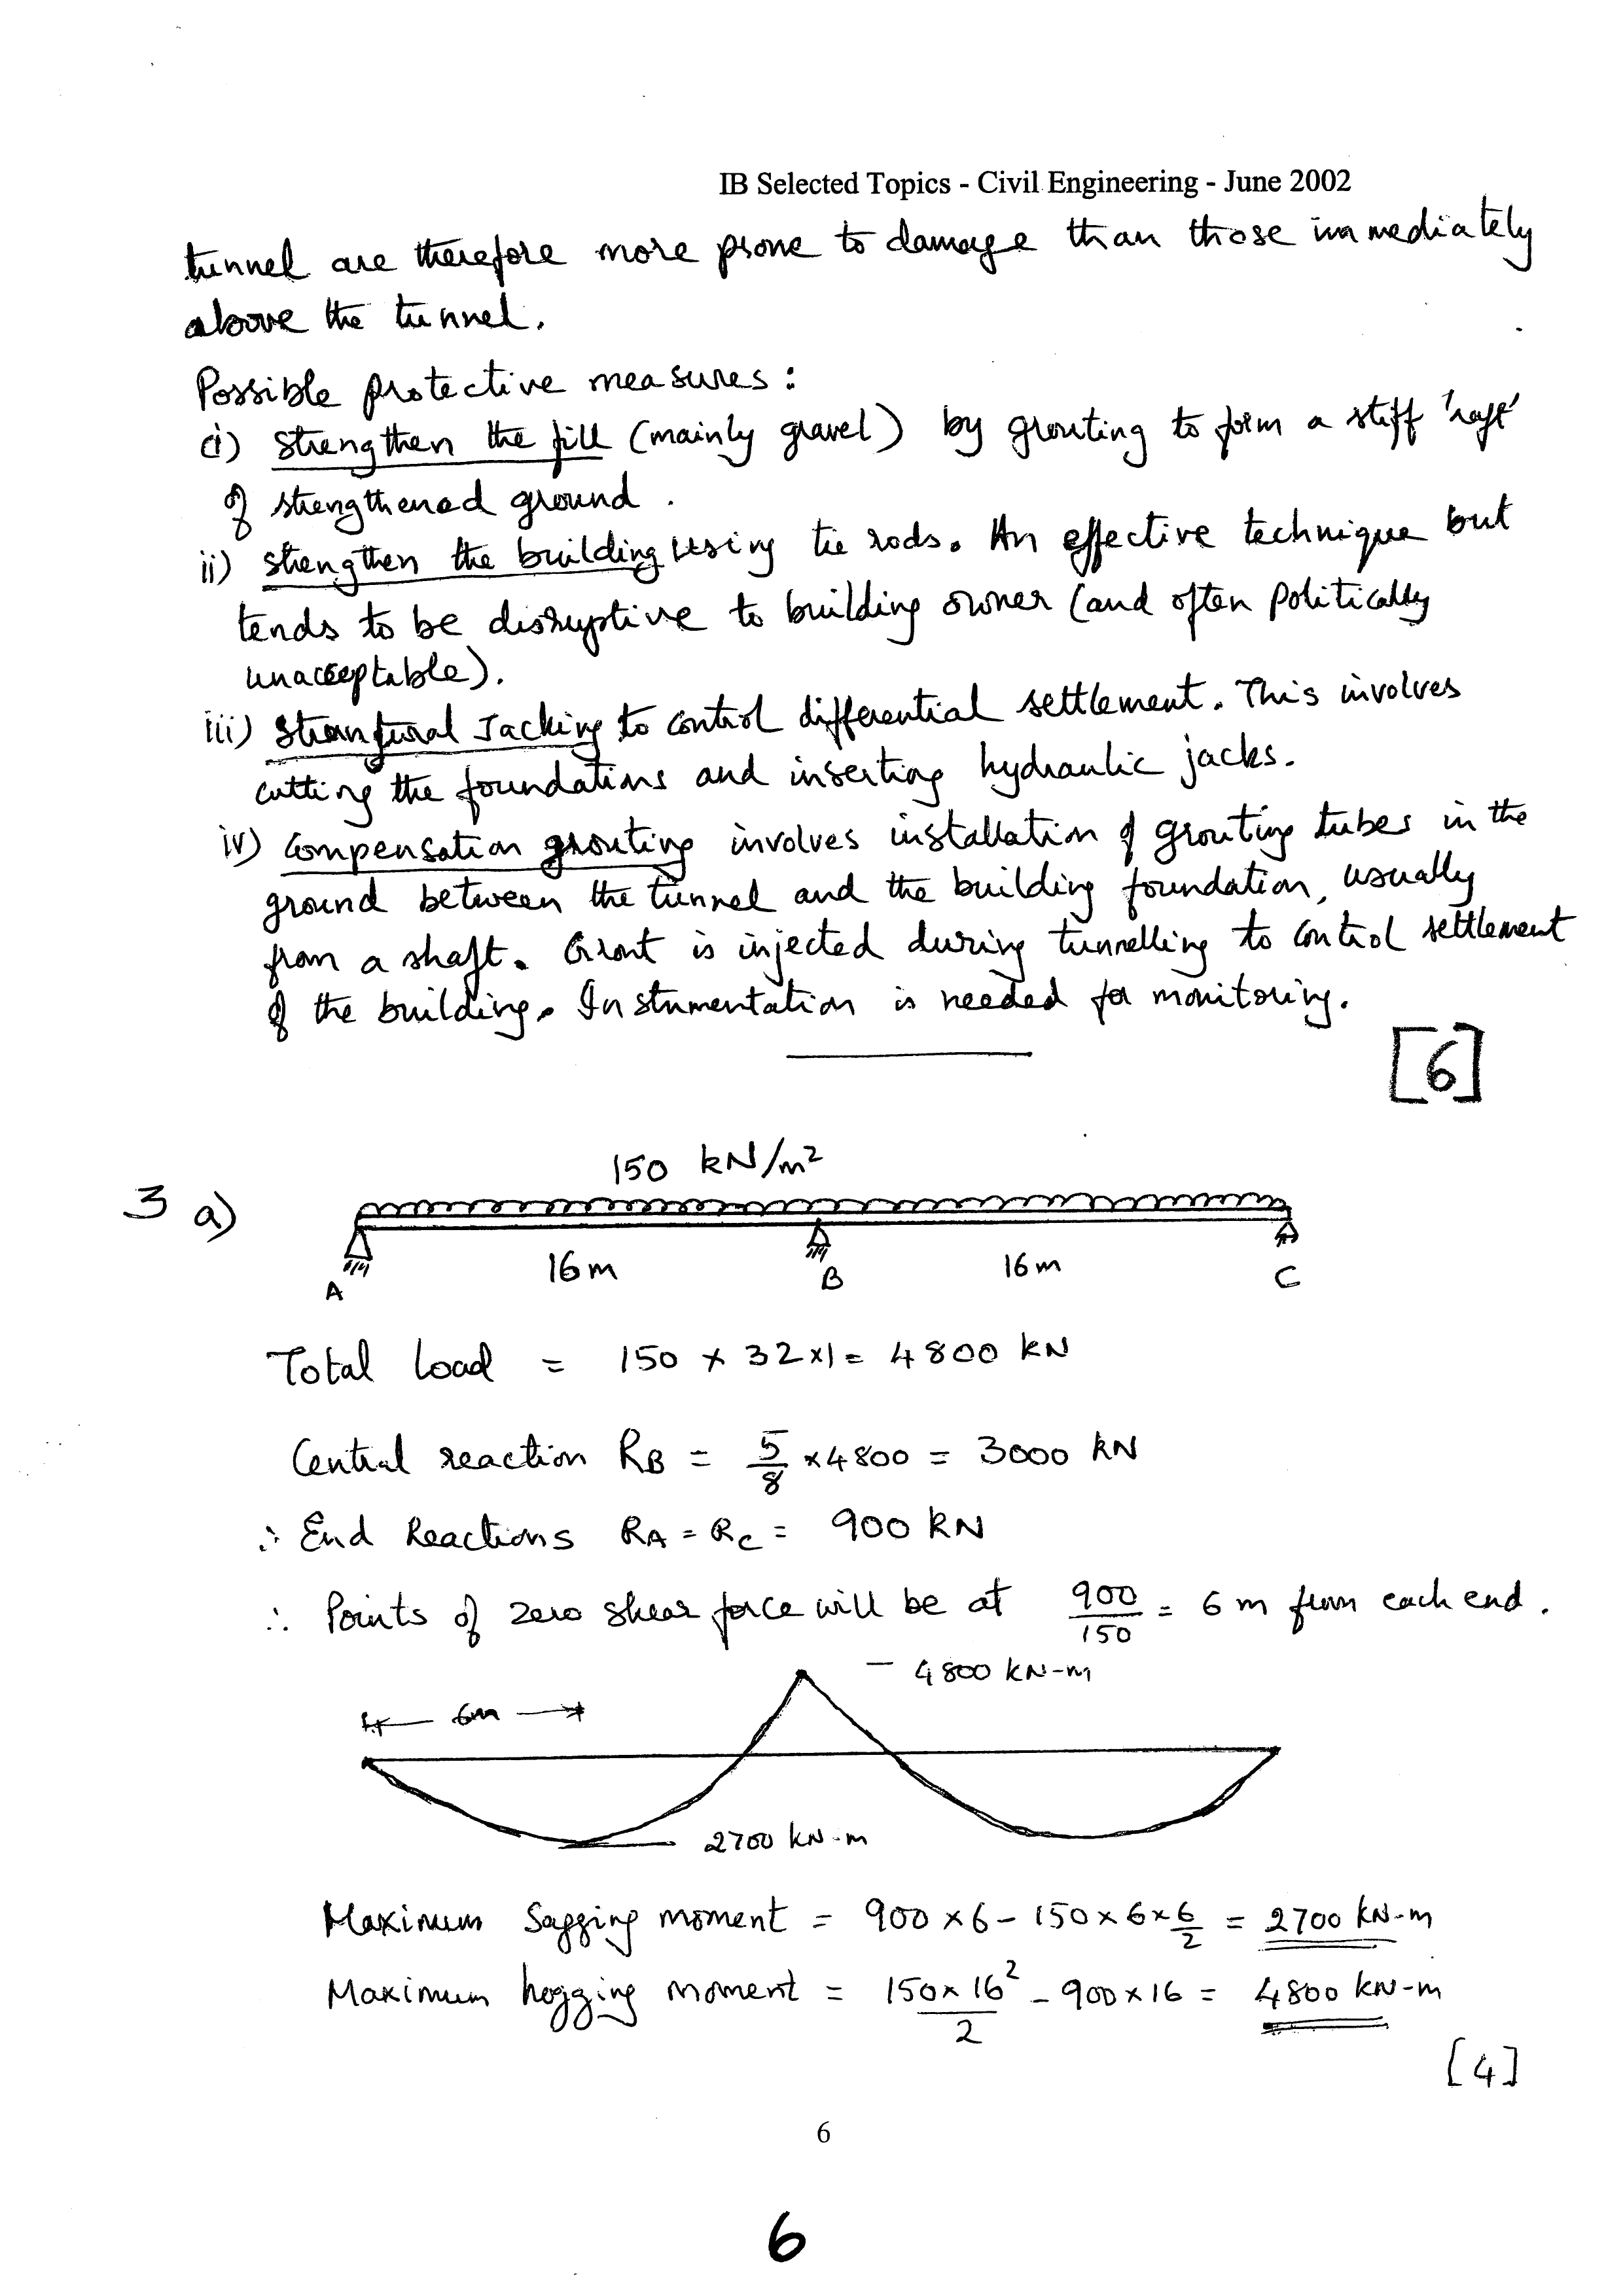 IB Selected Topics - Civil Engineering - June 2002
tunnel are therefore more prone to damage than those immediately
above the tunnel.
Possible protective measures:
(i) strengthen the fill (mainly gravel) by grouting to form a stiff 'raft'
of strengthened ground.
ii) strengthen the building using tie rods. An effective technique but
tends to be disruptive to building owner (and often politically
unacceptable).
iii) Jacking to control differential settlement. This involves
cutting the foundations and inserting hydraulic jacks.
iv) Compensation grouting involves installation of grouting tubes in the
ground between the tunnel and the building foundation, usually
from a shaft. Grout is injected during tunnelling to control settlement
of the building. Instrumentation is needed for monitoring.
[6]
3 a)
150 kN/m²
16m 16m
A B C
Total load = 150 × 32×1 = 4800 kN
Central reaction RB = 5/8 ×4800 = 3000 kN
∴ End Reactions RA = RC = 900 kN
∴ Points of zero shear force will be at 900/150 = 6 m from each end.
- 4800 kN-m
6m
2700 kN-m
Maximum Sagging moment = 900×6 - 150×6×6/2 = 2700 kN-m
Maximum hogging moment = 150×16²/2 - 900×16 = 4800 kN-m
[4]
6
6